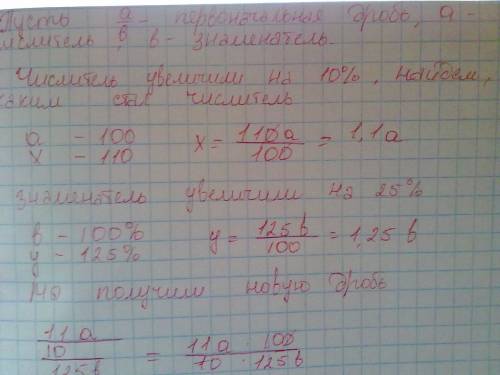 Пусть a/в - первоначальная дробь, a -
числитель, в - знаменатель.
Числитель увеличили на 10%. найдем,
каким стал числитель
a - 100
x - 110
x = 110a/100 = 1,1a
знаменатель увеличили на 25%
в - 100%
y - 125%
y = 125в/100 = 1,25 в
получили новую дробь
11a/10 / 125в = 11a · 100 / 10 · 125в